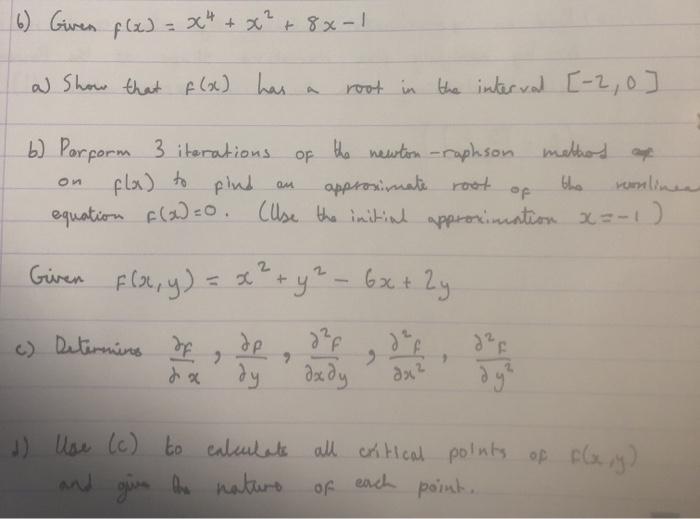 6) Given f(x) = x⁴ + x² + 8x - 1
a) Show that f(x) has a root in the interval [-2, 0]
b) Perporm 3 iterations of the newton-raphson method
on f(x) to find an approximate root of the nonlinea
equation f(x)=0. (Use the initial approximation x = -1)
Given f(x, y) = x² + y² - 6x + 2y
c) Determine ∂f/∂x, ∂f/∂y, ∂²f/∂x∂y, ∂²f/∂x², ∂²f/∂y²
d) Use (c) to calculate all critical points of f(x,y)
and give the nature of each point.